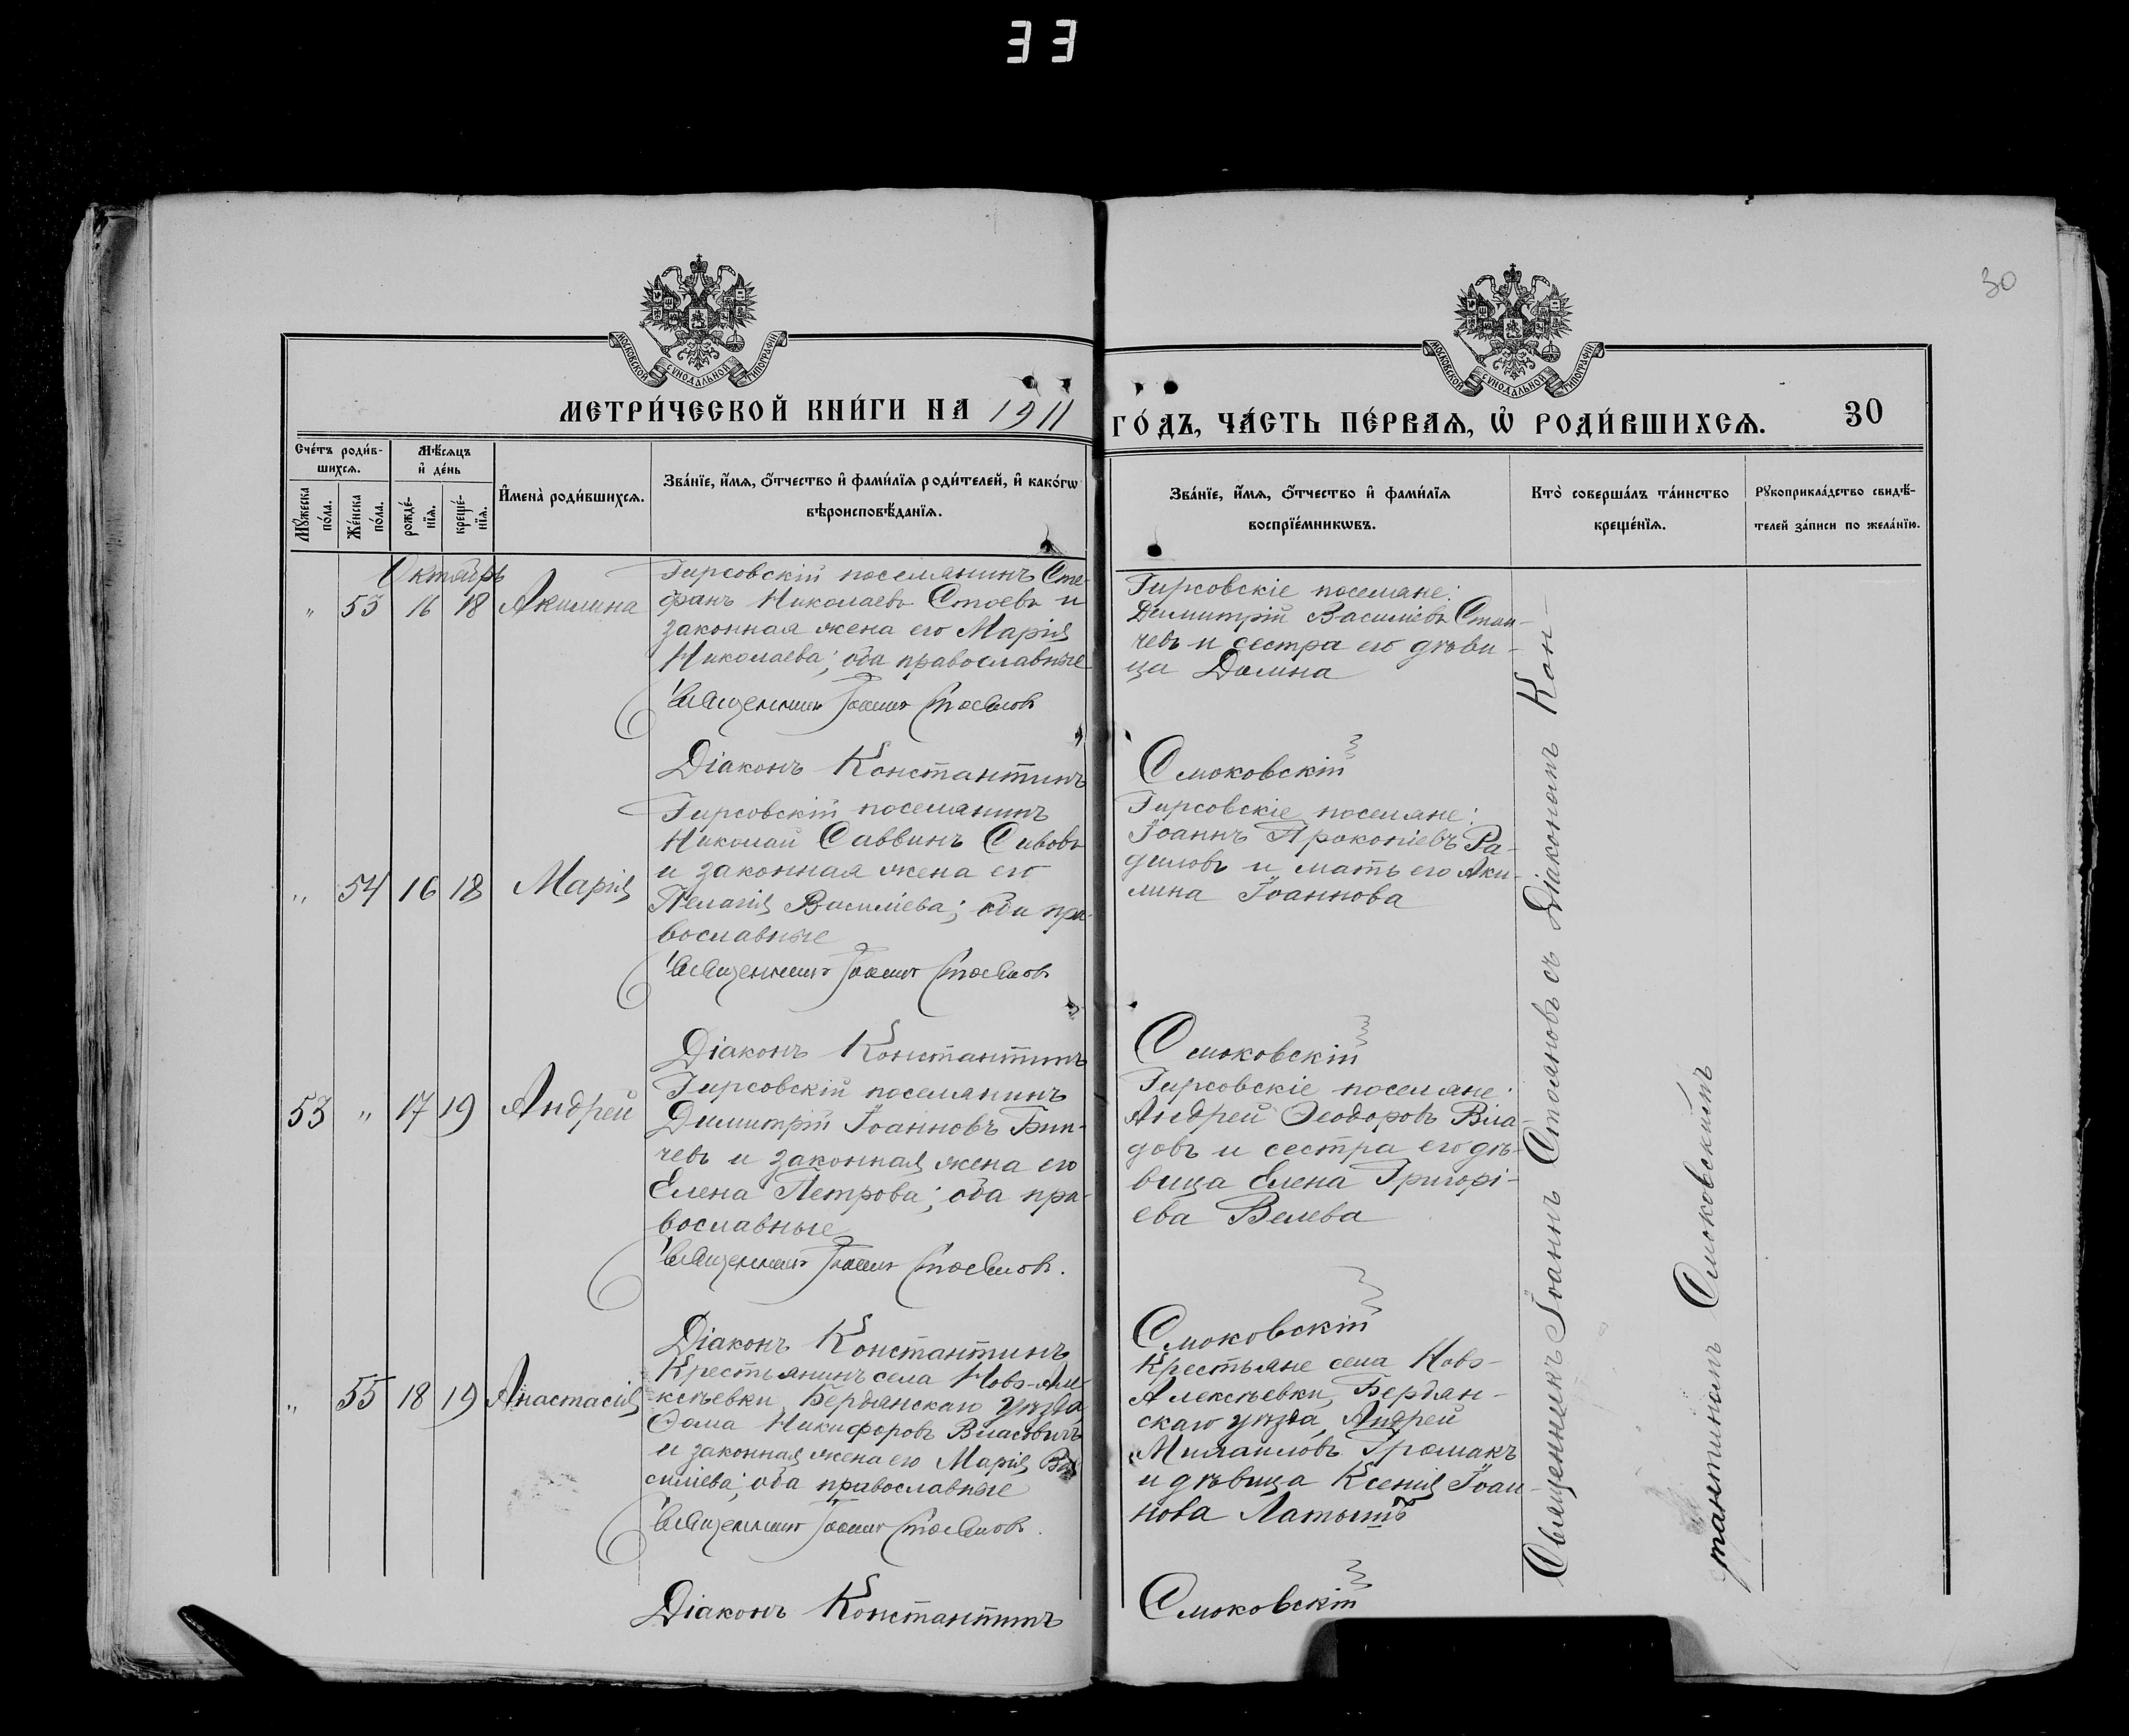 33
30
МОСКОВСКОЙ СУНОДАЛЬНОЙ ТИПОГРАФІИ
МОСКОВСКОЙ СУНОДАЛЬНОЙ ТИПОГРАФІИ
МЕТРИ́ЧЕСКОЙ КНИ́ГИ НА 1911 ГО́ДЪ, ЧА́СТЬ ПЕ́РВАѦ, Ѽ РОДИ́ВШИХСѦ. 30
Сче́тъ роди́в-
шихсѧ.
Мꙋ́жеска по́ла.
Же́нска по́ла.
Мѣ́сѧцъ
и҆ де́нь
рожде́-
нїѧ.
креще́-
нїѧ.
И҆мена̀ роди́вшихсѧ.
Зва́нїе, и҆́мѧ, ѻ҆́тчество и҆ фами́лїѧ роди́телей, и҆ како́гѡ
вѣроисповѣ́данїѧ.
Зва́нїе, и҆́мѧ, ѻ҆́тчество и҆ фами́лїѧ
воспрїе́мникѡвъ.
Кто̀ соверша́лъ та́инство
креще́нїѧ.
Рꙋкоприкла́дство свидѣ́-
телей за́писи по жела́нїю.
Октябрь
" 53 16 18 Акилина
Гирсовскій поселянинъ Сте-
фанъ Николаевъ Стоевъ и
законная жена его Марія
Николаева; оба православные
Священникъ Іоаннъ Стояновъ
Діаконъ Константинъ
Гирсовскіе поселяне:
Димитрій Василіевъ Стан-
чевъ и сестра его дѣви-
ца Домна
Смоковскій
" 54 16 18 Марія
Гирсовскій поселянинъ
Николай Саввинъ Сивовъ
и законная жена его
Пелагія Василіева; оба пра-
вославные
Священникъ Іоаннъ Стояновъ
Діаконъ Константинъ
Гирсовскіе поселяне:
Іоаннъ Прокопіевъ Ра-
диловъ и мать его Аки-
лина Іоаннова
Смоковскій
53 " 17 19 Андрей
Гирсовскій поселянинъ
Димитрій Іоанновъ Бин-
чевъ и законная жена его
Елена Петрова; оба пра-
вославные
Священникъ Іоаннъ Стояновъ.
Діаконъ Константинъ
Гирсовскіе поселяне:
Андрей Ѳеодоровъ Вла-
довъ и сестра его дѣ-
вица Елена Григорі-
ева Велева
Смоковскій
" 55 18 19 Анастасія
Крестьянинъ села Ново-Але-
ксѣевки, Бердянскаго уѣзда,
Ѳома Никифоровъ Власовичъ
и законная жена его Марія Ва-
силіева; оба православные
Священникъ Іоаннъ Стояновъ.
Діаконъ Константинъ
Крестьяне села Ново-
Алексѣевки, Бердян-
скаго уѣзда, Андрей
Михаиловъ Громакъ
и дѣвица Ксенія Іоан-
нова Латышъ
Смоковскій
Священникъ Іоаннъ Стояновъ съ Діакономъ Кон-
стантиномъ Смоковскимъ